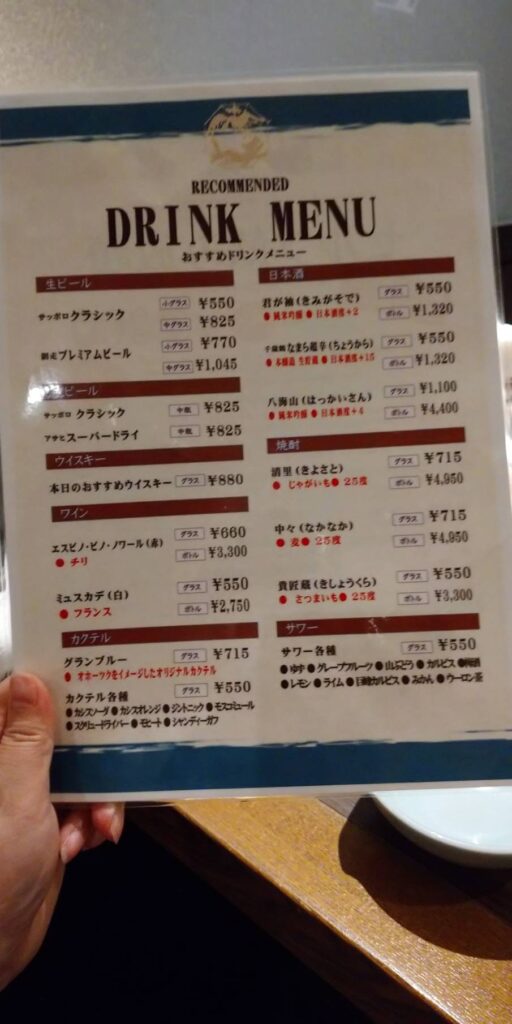 RECOMMENDED
DRINK MENU
おすすめドリンクメニュー
生ビール
サッポロ クラシック 小グラス ¥550
中グラス ¥825
網走プレミアムビール 小グラス ¥770
中グラス ¥1,045
ビール
サッポロ クラシック 中瓶 ¥825
アサヒ スーパードライ 中瓶 ¥825
ウイスキー
本日のおすすめウイスキー グラス ¥880
ワイン
エスピノ・ピノ・ノワール(赤) グラス ¥660
● チリ ボトル ¥3,300
ミュスカデ(白) グラス ¥550
● フランス ボトル ¥2,750
カクテル
グランブルー グラス ¥715
● オホーツクをイメージしたオリジナルカクテル
カクテル各種 グラス ¥550
●カシスソーダ ●カシスオレンジ ●ジントニック ●モスコミュール
●スクリュードライバー ●モヒート ●シャンディーガフ
日本酒
君が袖(きみがそで) グラス ¥550
● 純米吟醸 ● 日本酒度+2 ボトル ¥1,320
千歳鶴 なまら超辛(ちょうから) グラス ¥550
● 本醸造 生貯蔵 ● 日本酒度+15 ボトル ¥1,320
八海山(はっかいさん) グラス ¥1,100
● 純米吟醸 ● 日本酒度+4 ボトル ¥4,400
焼酎
清里(きよさと) グラス ¥715
● じゃがいも ● 25度 ボトル ¥4,950
中々(なかなか) グラス ¥715
● 麦 ● 25度 ボトル ¥4,950
貴匠蔵(きしょうぐら) グラス ¥550
● さつまいも ● 25度 ボトル ¥3,300
サワー
サワー各種 グラス ¥550
●ゆず ●グレープフルーツ ●山ぶどう ●カルピス ●梅酒
●レモン ●ライム ●巨峰カルピス ●みかん ●ウーロン茶